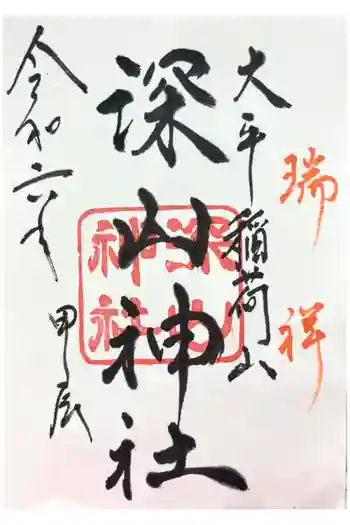 瑞祥
大平稲荷山
深山神社
深山神社
令和六年 甲辰